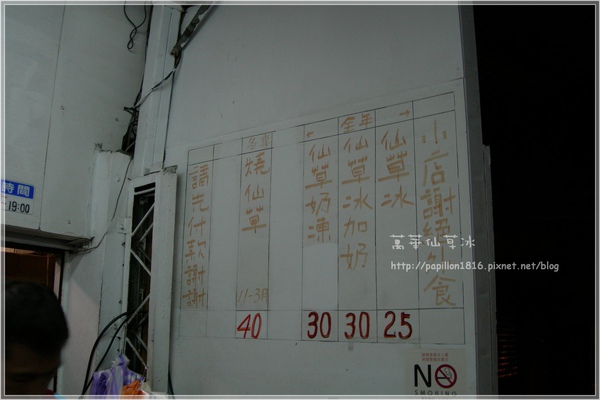 小店謝絕外食
仙草冰 25
全年
仙草冰加奶 30
仙草奶凍 30
燒仙草 11-3月 40
請先付款謝謝
時間
19:00
萬華仙草冰
http://papillon1816.pixnet.net/blog
NO
SMOKING